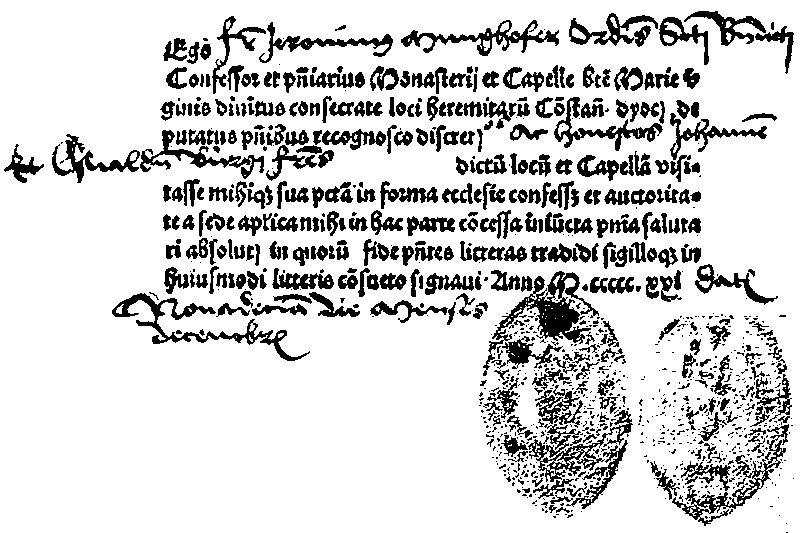 Ego fr̄ Jeronimus Munghofer Ordīs Scti Bn̄dicti
Confessor et pn̄iarius Monasterij et Capelle btē Marie v
ginis diuītus consecrate loci heremitarū Cōstan̄. dyocꝭ de
putatus pn̄ibus recognosco discretꝭ Ac honestos Johannē
et Oswaldū Burgi frēs dictū locū et Capellā visi-
tasse mihiqꝫ sua pctā in forma ecclesie confessꝭ et auctorita-
te a sede aplica mihi in hac parte cōcessa iniūcta pn̄ia saluta
ri absolutꝭ in quorū fide pn̄tes litteras tradidi sigilloqꝫ in
huiusmodi litteris cōsueto signaui. Anno M.ccccc.xxi datꝭ
Nonadecima die Mensis
decembrꝭ